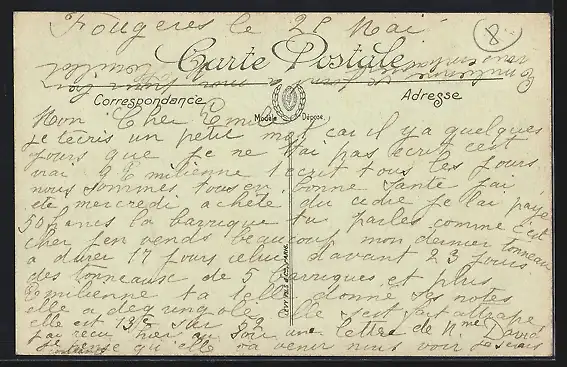 Fougeres le 25 Mai
8
Carte Postale
Correspondance
Adresse
Modèle Déposé
Mon Cher Emile
je tecris un petit mot car il y a quelques
jours que je ne t'ai pas ecrit cest
vrai q Emilienne tecrit tous les jours
nous sommes tous en bonne santé jai
ete mercredi acheté du cidre je lai payé
50 francs la barrique tu parles comme c'est
cher jen vends beaucoup mon dernier tonneau
a durer 17 jours celui davant 23 jours
des tonneaux de 5 barriques et plus
Emilienne ta telle donne ses notes
elle a degringolé elle sest fait attrapé
elle est 13e sur
jai recu hier au soir une lettre de Mme David
je pense qu'elle va venir nous voir
LEVY FILS & Cie PARIS